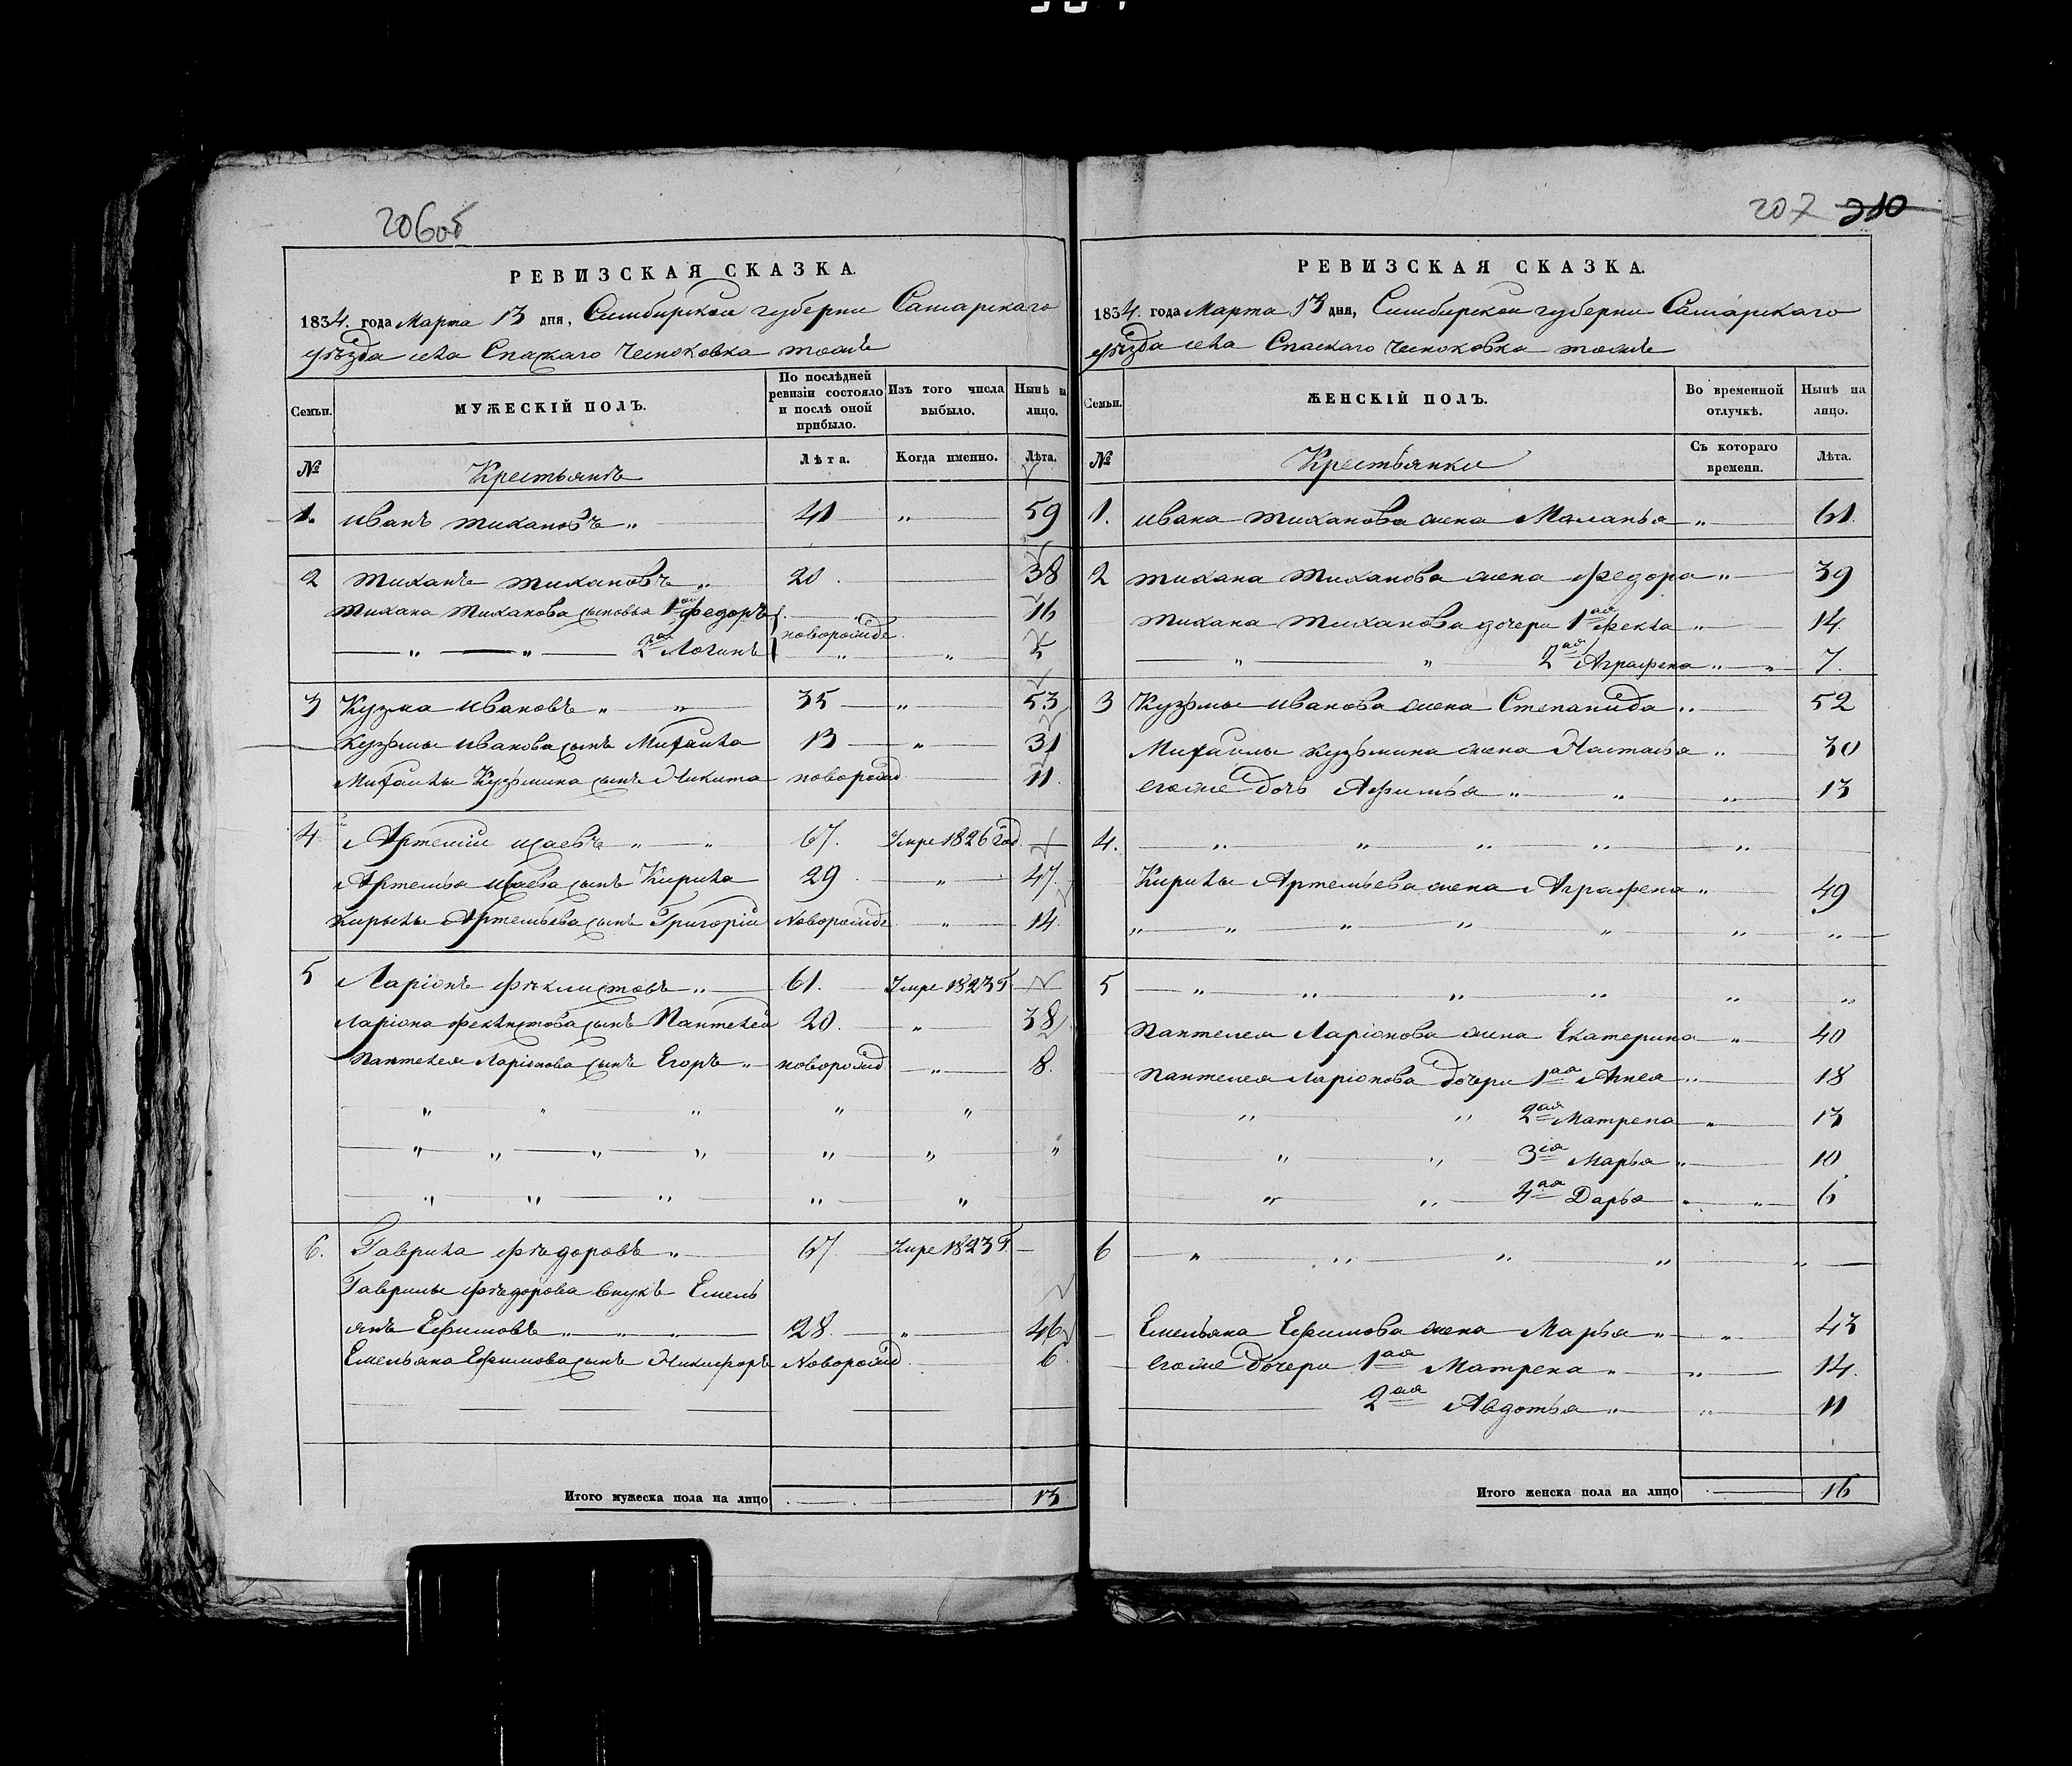 206об
РЕВИЗСКАЯ СКАЗКА.
1834. года Марта 13 дня, Симбирской губерни Самарскаго
уѣзда села Спаскаго Чесноковка тожъ
Семьи.
МУЖЕСКІЙ ПОЛЪ.
По послѣдней ревизіи состояло и послѣ оной прибыло.
Изъ того числа выбыло.
Нынѣ на лицо.
№
Крестьянъ
Лѣта.
Когда именно.
Лѣта.
1. Иванъ Тихановъ „ 41 „ 59
2 Тиханъ Тихановъ „ 20. 38
Тихана Тиханова сыновья 1й Федоръ 16
„ „ 2й Логинъ новорожде „ „ 5
3 Кузма Ивановъ „ „ 35 „ 53
Кузьмы Иванова сынъ Михайла 13 „ 31
Михайлы Кузьмина сынъ Никита новорожд. 11.
4 Артемій Исаевъ „ „ 67. Умре 1826 год.
Артемья Исаева сынъ Кирила 29 „ 47.
Кирылы Артемьева сынъ Григорій Новорожде „ 14.
5 Ларіонъ Фѣклистовъ „ 61. Умре 1823 г.
Ларіона Феклистова сынъ Пантелей 20. „ 38
Пантелея Ларіонова сынъ Егоръ „ новорожд „ 8.
„ „ „ „ „
„ „ „ „ „ „ „
„ „ „ „ „
6. Гаврила Фѣдоровъ „ 67 Умре 1823 г.
Гаврилы Фѣдорова внукъ Емель
янъ Ефимовъ „ „ „ 28. „ 46
Емельяна Ефимова сынъ Никифоръ Новорожд. 6.
Итого мужеска пола на лицо 13
207 210
РЕВИЗСКАЯ СКАЗКА.
1834. года Марта 13 дня, Симбирской губерни Самарскаго
уѣзда села Спаскаго Чесноковка тожъ
Семьи.
ЖЕНСКІЙ ПОЛЪ.
Во временной отлучкѣ.
Нынѣ на лицо.
№
Крестьянки
Съ котораго времени.
Лѣта.
1. Ивана Тиханова жена Маланья „ 61.
2 Тихана Тиханова жена Федора „ 39
Тихана Тиханова дочери 1ая Фекла „ 14.
„ „ 2ая Аграфена „ „ 7.
3 Кузьмы Иванова жена Степанида „ 52
Михайлы Кузьмина жена Настасья „ 30
егоже дочь Афимья „ „ „ 13
4. „ „ „ „ „
Кирилы Артемьева жена Аграфена „ 49
„ „ „ „ „ „ „
5 „ „ „ „ „ „
Пантелея Ларіонова жена Екатерина „ 40
Пантелея Ларіонова дочери 1ая Анна „ 18
„ „ 2ая Матрена „ 13
„ „ 3ія Марья „ 10
„ „ 4ая Дарья „ „ 6
6 „ „ „ „ „
Емельяна Ефимова жена Марья „ „ 43
егоже дочери 1ая Матрена „ „ 14.
2ая Авдотья „ „ 11
Итого женска пола на лицо 16